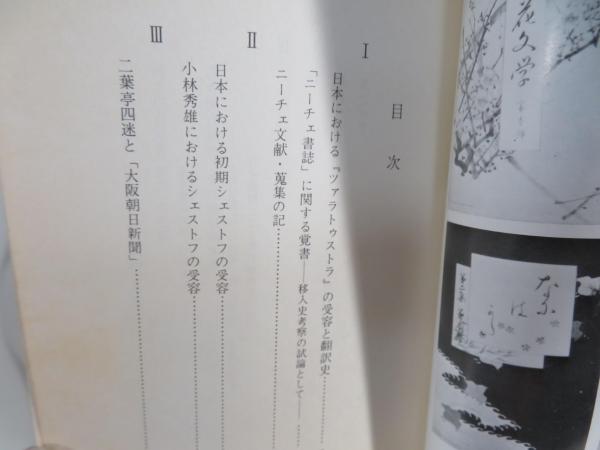 目次
Ⅰ
日本における『ツァラトゥストラ』の受容と翻訳史……
「ニーチェ書誌」に関する覚書――移入史考察の試論として――……
ニーチェ文献・蒐集の記……
Ⅱ
日本における初期シェストフの受容……
小林秀雄におけるシェストフの受容……
Ⅲ
二葉亭四迷と「大阪朝日新聞」……
花文学